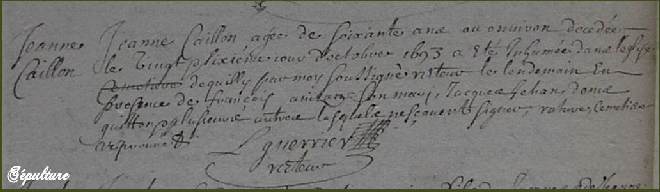 Jeanne
Caillon
Jeanne Caillon agée de soixante ans ou environ decedée
le vingt sixiéme jour d'octobre 1693 a été Inhumée dans leglise
de quilly par moy soussigné recteur le lendemain En
presence de françois son mary, Jacques Jehan
plusieurs autres lesquels ne scavent signer,
approuvé
L guerrier
recteur
Sépulture